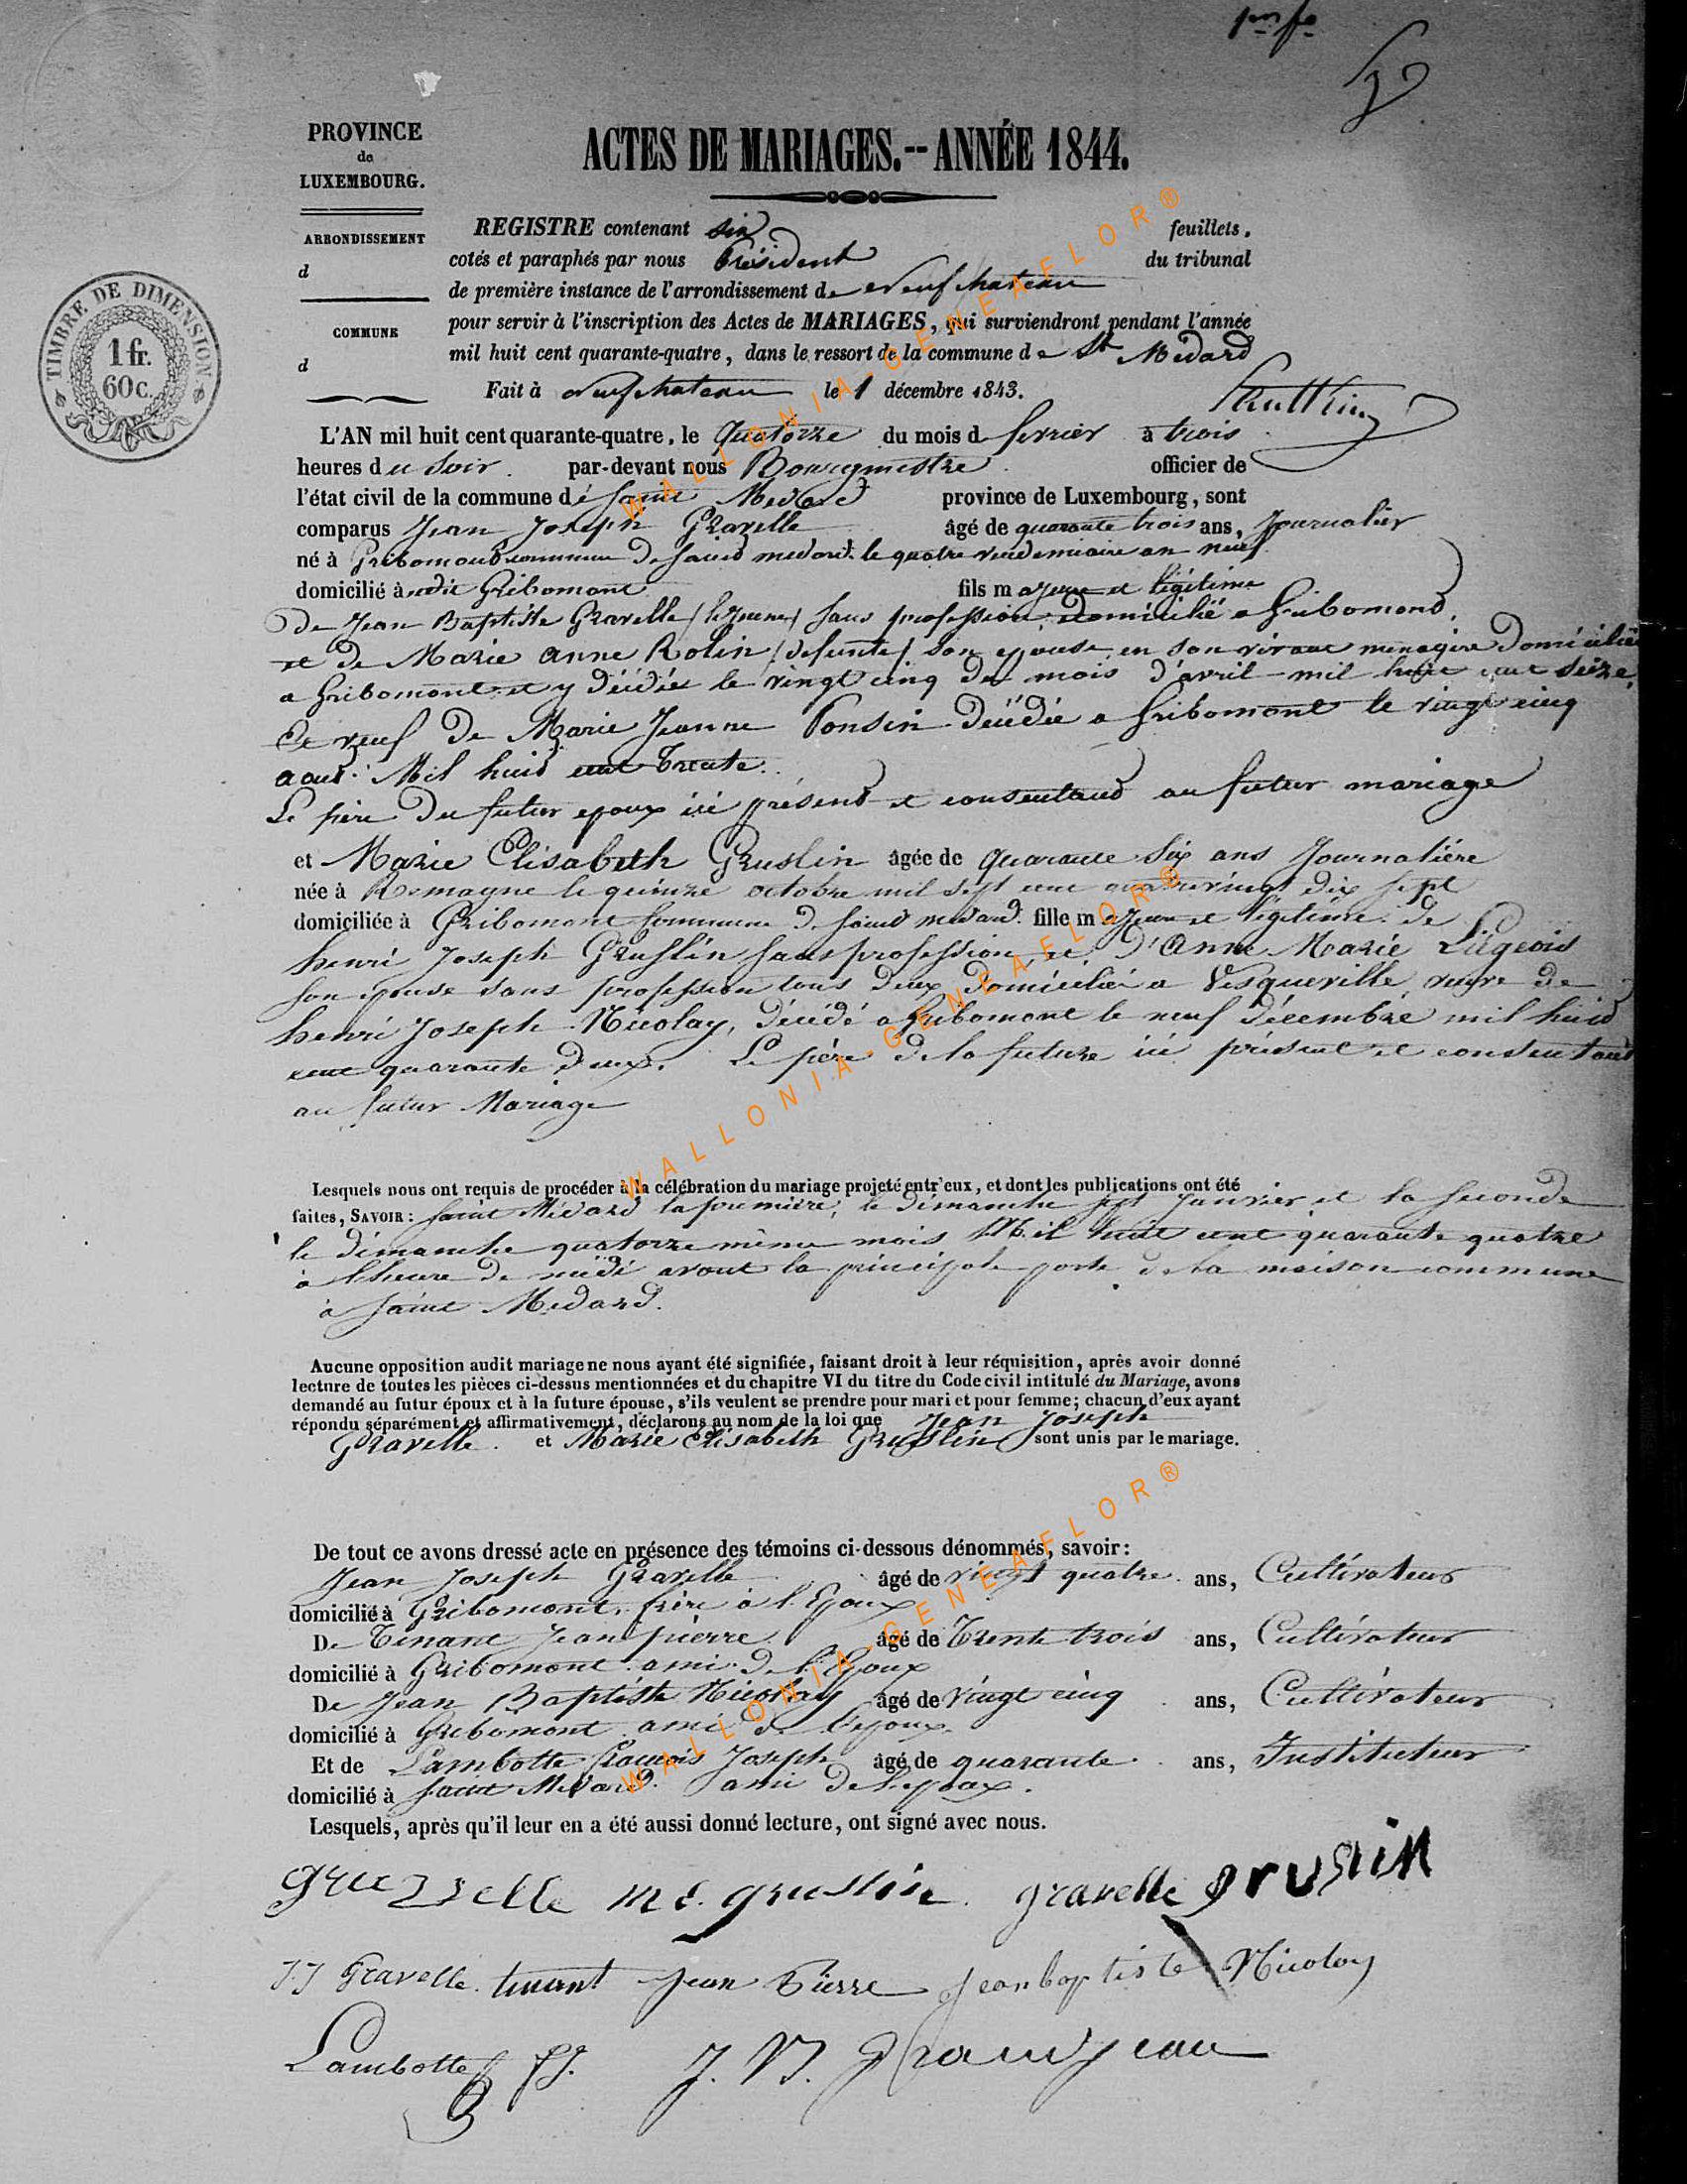 PROVINCE
de
LUXEMBOURG.
ARRONDISSEMENT
d
COMMUNE
d
TIMBRE DE DIMENSION
1 fr.
60 c.
ACTES DE MARIAGES.-- ANNÉE 1844.
REGISTRE contenant six feuillets,
cotés et paraphés par nous Président du tribunal
de première instance de l'arrondissement de Neufchateau
pour servir à l'inscription des Actes de MARIAGES, qui surviendront pendant l'année
mil huit cent quarante-quatre, dans le ressort de la commune de St Médard
Fait à Neufchateau le 1 décembre 1843.
L'AN mil huit cent quarante-quatre, le Quatorze du mois d fevrier à trois
heures du soir par-devant nous Bourgmestre officier de
l'état civil de la commune de Saint Médard province de Luxembourg, sont
comparus Jean Joseph Gravelle âgé de quarante trois ans, Journalier
né à Gribomont commune de Saint medard le quatre vendemiaire an neuf
domicilié à audit Gribomont fils majeur et légitime
De Jean Baptiste Gravelle (le jeune) sans profession domicilié a Gribomond,
et de Marie Anne Rolin (defunte) son epouse en son vivant menagère Domiciliée
a Gribomont et y décédée le vingt cinq du mois d'avril mil huit cent seize,
Et veuf de Marie Jeanne Ponsin décédée a Gribomont le vingt cinq
aout Mil huid cent Trente.
Le père du futur epoux ici présend et consentand au futur mariage
et Marie Elisabeth Gruslin âgée de quarante Six ans Journalière
née à Remagne le quinze octobre mil sept cent quatrevingt dix sept
domiciliée à Gribomont Commune de Saint medard fille majeure et légitime de
henri Joseph Gruslin sans profession et d'Anne Marie Liégeois
son epouse sans profession tous deux domiciliés a Vesqueville, veuve de
henri Joseph Nicolay, décédé a Gribomont le neuf Décembre mil huid
cent quarante deux. Le père de la future ici présent et consentant
au futur Mariage
Lesquels nous ont requis de procéder à la célébration du mariage projeté entr'eux, et dont les publications ont été
faites, SAVOIR : Saint Médard la première, le dimanche sept Janvier et la seconde
le dimanche quatorze même mois Mil huit cent quarante quatre
à l'heure de midi avant la principale porte de la maison commune
à Saint Medard.
Aucune opposition audit mariage ne nous ayant été signifiée, faisant droit à leur réquisition, après avoir donné
lecture de toutes les pièces ci-dessus mentionnées et du chapitre VI du titre du Code civil intitulé du Mariage, avons
demandé au futur époux et à la future épouse, s'ils veulent se prendre pour mari et pour femme; chacun d'eux ayant
répondu séparément et affirmativement, déclarons au nom de la loi que Jean Joseph
Gravelle et Marie Elisabeth Gruslin sont unis par le mariage.
De tout ce avons dressé acte en présence des témoins ci-dessous dénommés, savoir :
Jean Joseph Gravelle âgé de vingt quatre ans, Cultivateur
domicilié à Gribomont, frère à l'Epoux
De Tinant Jean pierre âgé de Trente trois ans, Cultivateur
domicilié à Gribomont ami de l'Epoux
De Jean Baptiste Nicolay âgé de Vingt cinq ans, Cultivateur
domicilié à Gribomont ami de l'epoux
Et de Lambotte François Joseph âgé de quarante ans, Instituteur
domicilié à Saint Médard ami de l'epoux.
Lesquels, après qu'il leur en a été aussi donné lecture, ont signé avec nous.
gravelle m e. gruslin gravelle gruslin
J.J Gravelle tinant Jean Pierre Jean baptiste Nicolay
Lambotte fj. J. B. Grandjean
WALLONIA-GENEAFLOR®
WALLONIA-GENEAFLOR®
WALLONIA-GENEAFLOR®